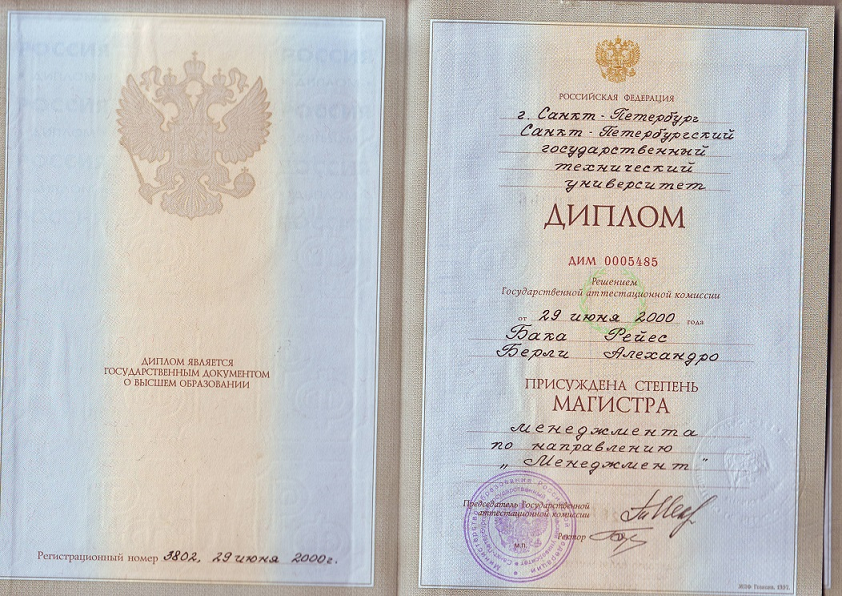 ДИПЛОМ ЯВЛЯЕТСЯ
ГОСУДАРСТВЕННЫМ ДОКУМЕНТОМ
О ВЫСШЕМ ОБРАЗОВАНИИ
Регистрационный номер 3802, 29 июня 2000г.
РОССИЙСКАЯ ФЕДЕРАЦИЯ
г. Санкт-Петербург
Санкт-Петербургский
государственный
технический
университет
ДИПЛОМ
ДИМ 0005485
Решением
Государственной аттестационной комиссии
от 29 июня 2000 года
Бака Рейес
Берли Алехандро
ПРИСУЖДЕНА СТЕПЕНЬ
МАГИСТРА
менеджмента
по направлению
„Менеджмент"
Председатель Государственной
аттестационной комиссии
М.П.
Ректор